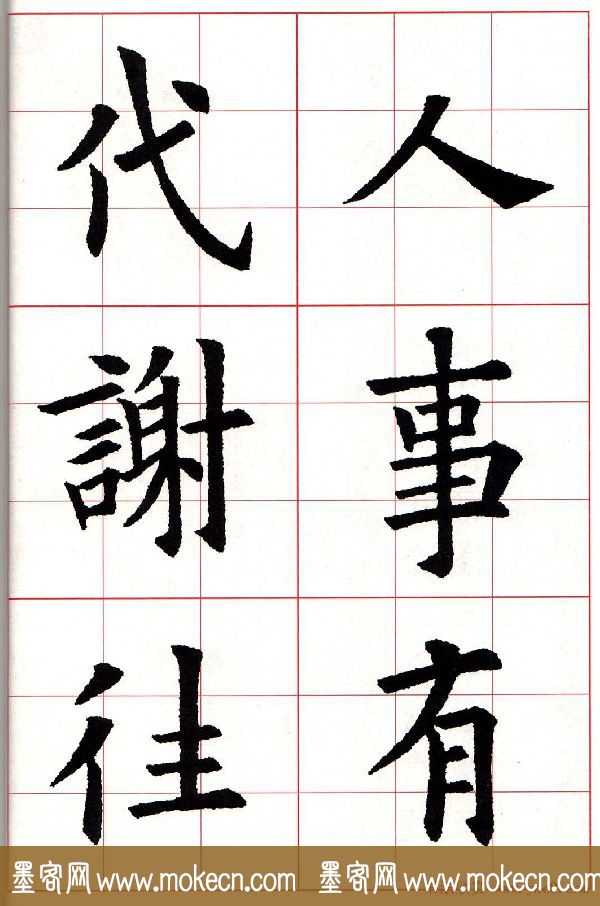 人事有
代謝往
墨客网 www.mokecn.com 墨客网 www.mokecn.com